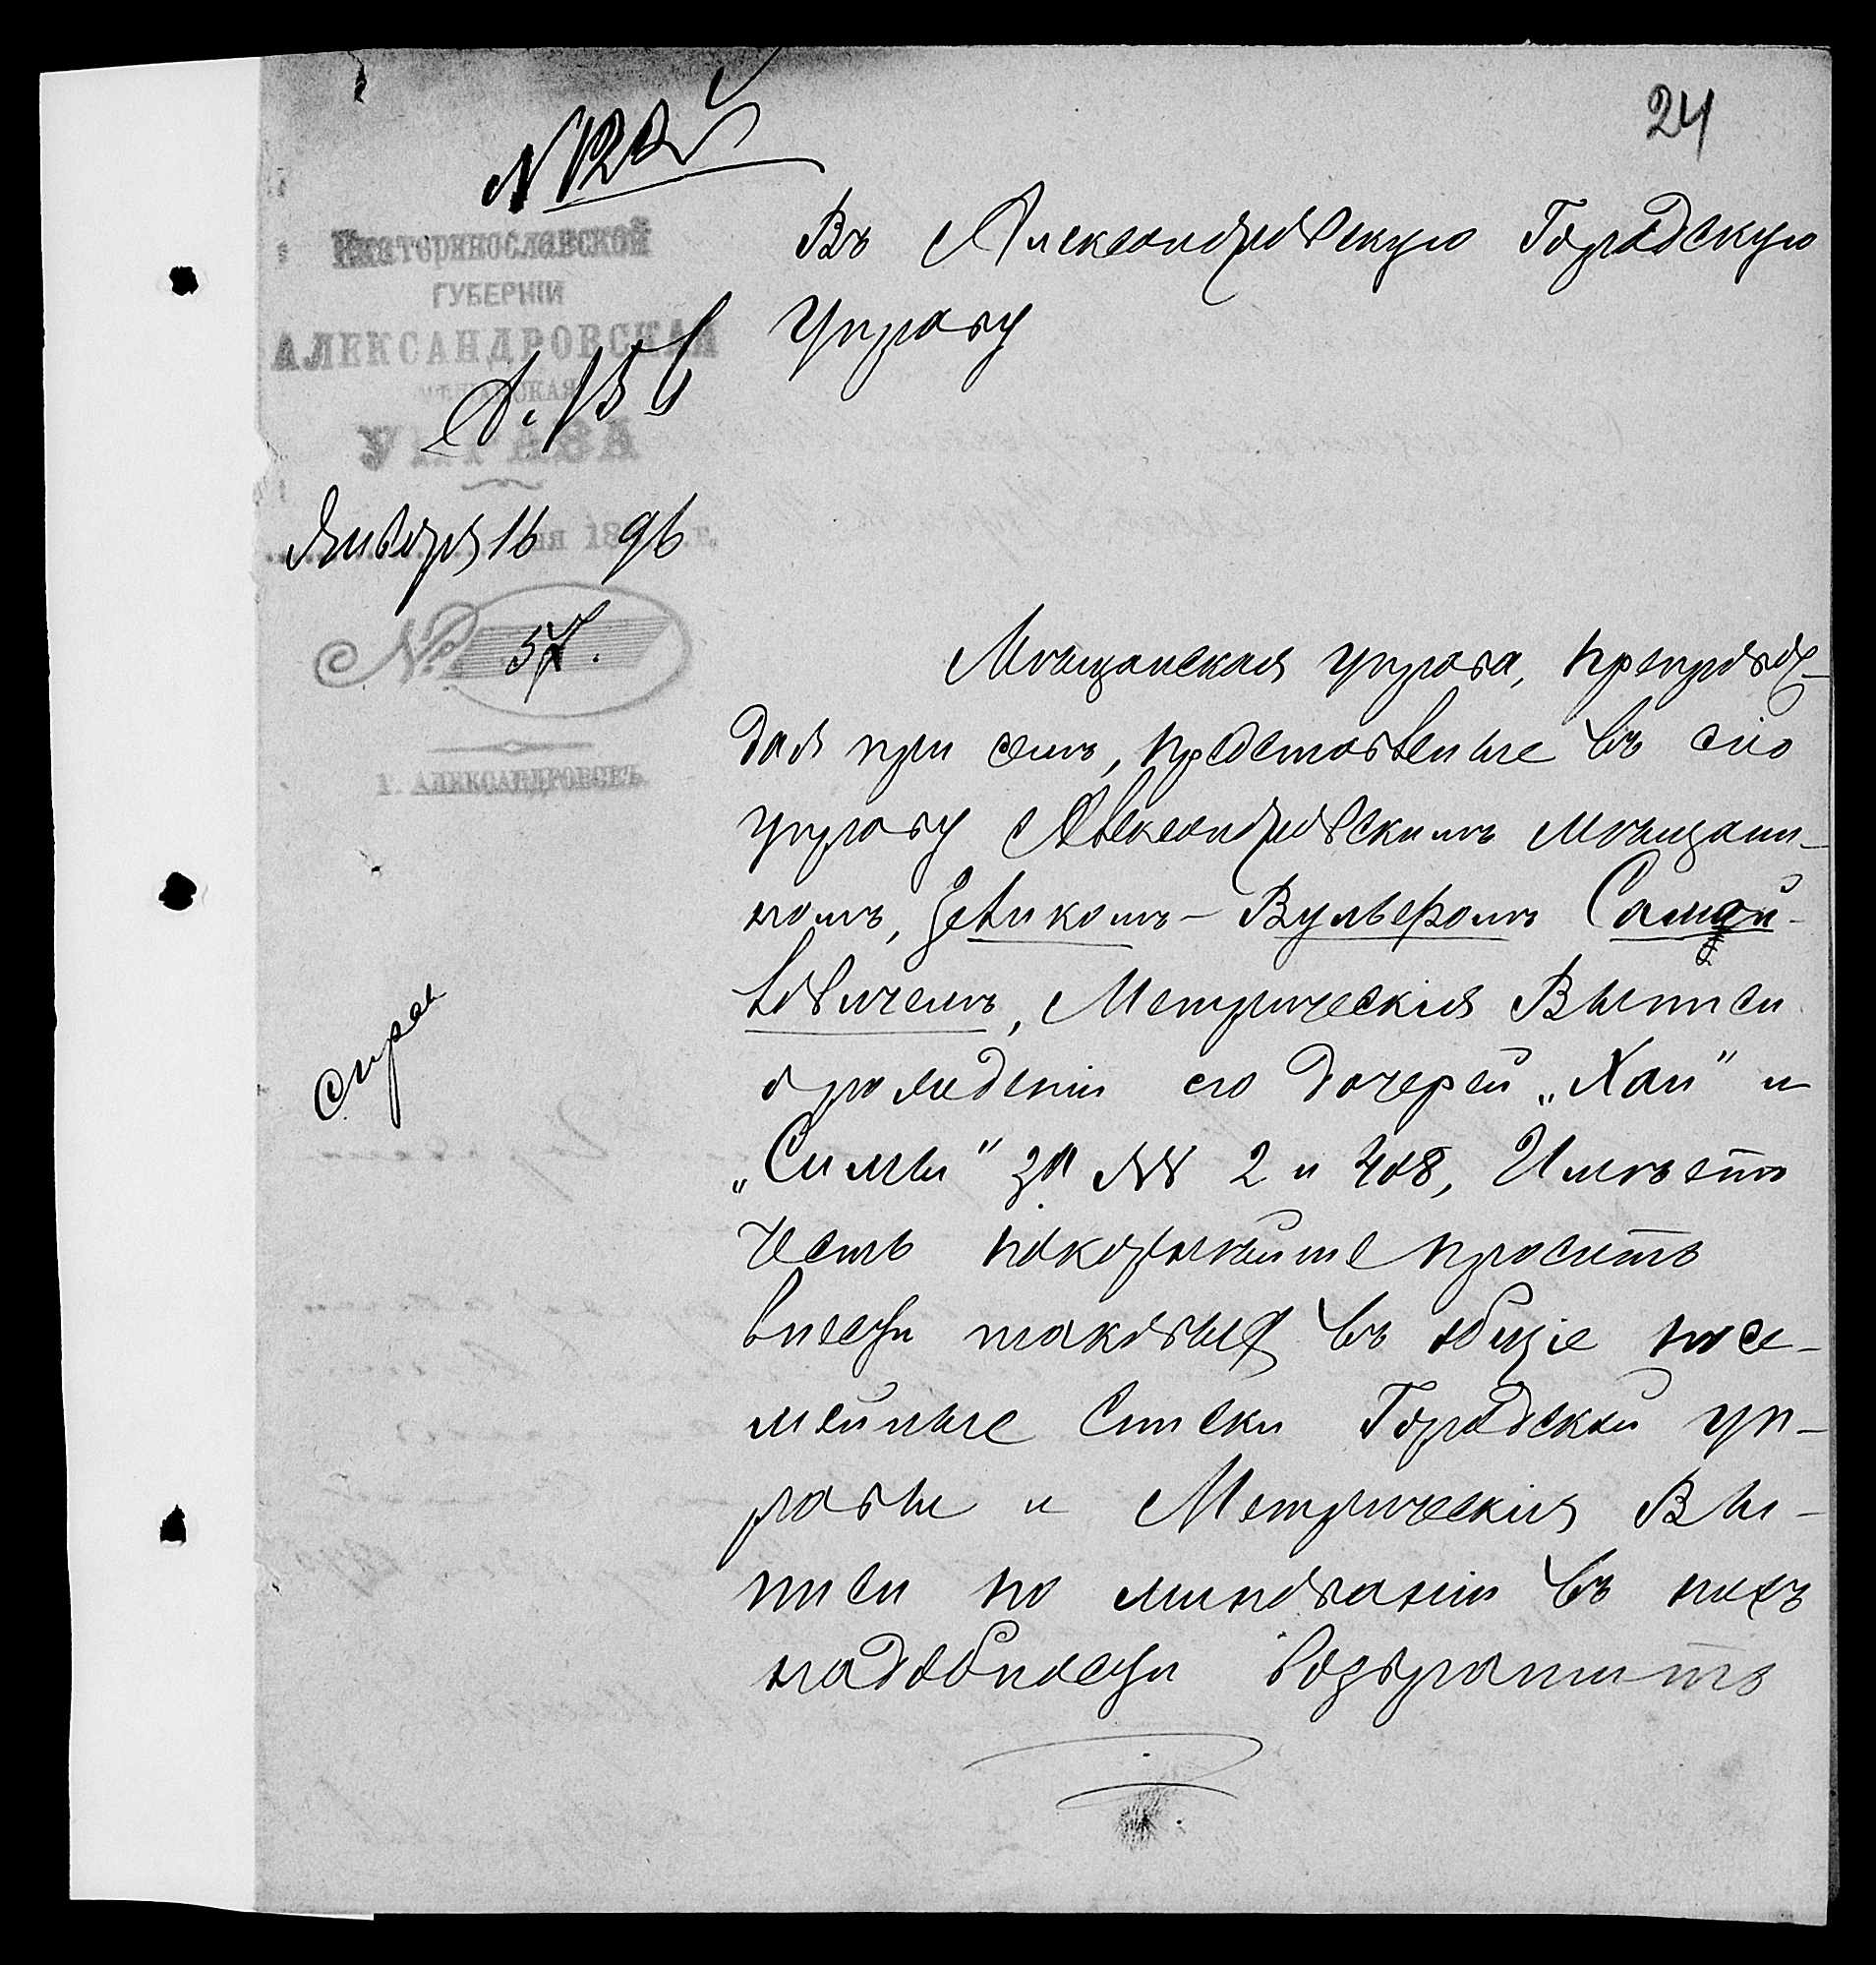 24
Екатеринославской
ГУБЕРНІИ
АЛЕКСАНДРОВСКАЯ
МѢЩАНСКАЯ
УПРАВА
Января 16 дня 1896 г.
№ 57.
Г. АЛЕКСАНДРОВСКЪ.
Въ Александровскую Городскую
Управу
Мѣщанская управа, препровож-
дая при семъ, представленые въ сію
управу Александровскимъ мѣщани-
номъ, Зеликомъ-Вульфомъ Самой-
ловичемъ, Метрическія Выписи
о рожденіи его дочерей „Хаи" и
„Симы" за №№ 2 и 408, Имѣетъ
честь покорнѣйше просить
внести таковыя въ общіе посе-
мейные списки Городской уп-
равы и Метрическія Вы-
писи по минованіи въ нихъ
надобности возвратить